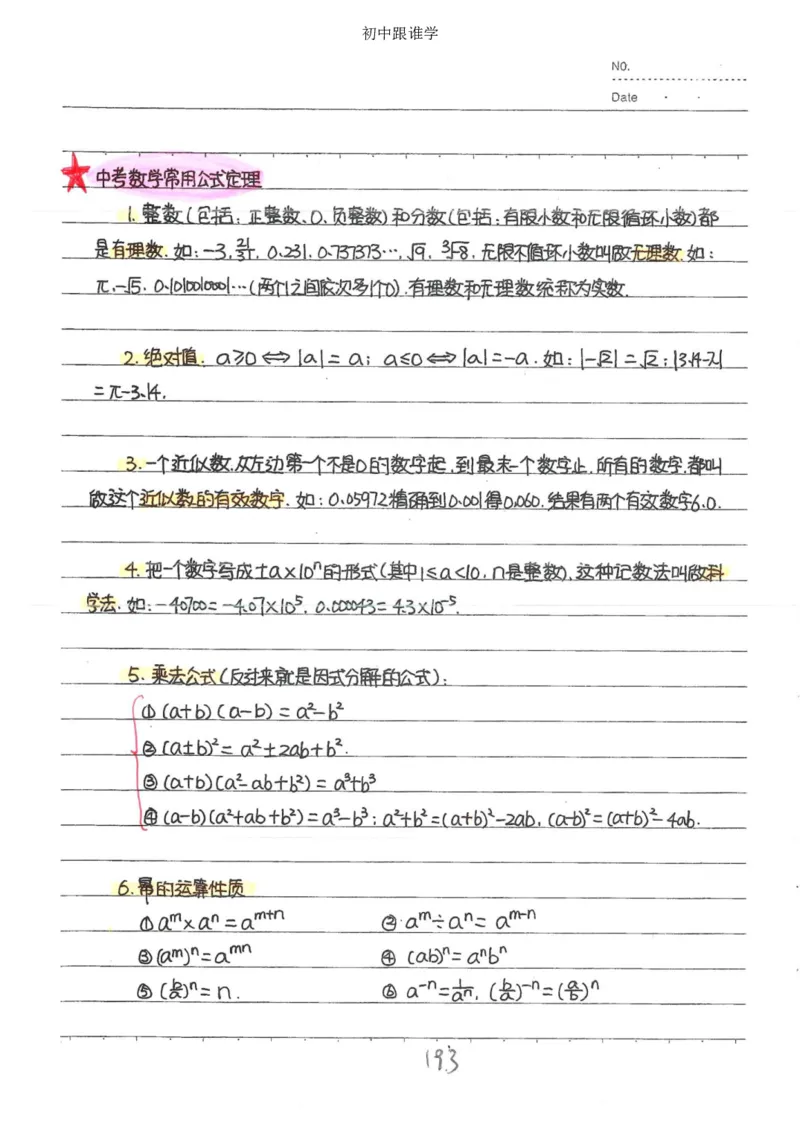 初中跟谁学
NO.
Date
中考数学常用公式定理
1. 整数(包括: 正整数、0、负整数)和分数(包括: 有限小数和无限循环小数)都
是有理数. 如: -3, 0.231, 0.737373…, √9, ³√-8. 无限不循环小数叫做无理数. 如:
π, -√5, 0.1010010001…(两个1之间依次多1个0). 有理数和无理数统称为实数.
2. 绝对值: a≥0 ⟺ |a|=a; a≤0 ⟺ |a|=-a. 如: |-√2|=√2; |3.14-π|
=π-3.14.
3. 一个近似数, 从左边第一个不是0的数字起, 到最末一个数字止, 所有的数字, 都叫
做这个近似数的有效数字. 如: 0.05972精确到0.001得0.060. 结果有两个有效数字6.0.
4. 把一个数字写成±a×10ⁿ的形式(其中1≤a<10, n是整数), 这种记数法叫做科
学法. 如: -40700=-4.07×10⁵, 0.000043=4.3×10⁻⁵.
5. 乘法公式(反过来就是因式分解的公式):
① (a+b)(a-b)=a²-b²
② (a±b)²=a²±2ab+b².
③ (a+b)(a²-ab+b²)=a³+b³
④ (a-b)(a²+ab+b²)=a³-b³; a²+b²=(a+b)²-2ab, (a-b)²=(a+b)²-4ab.
6. 幂的运算性质
① aᵐ×aⁿ=aᵐ⁺ⁿ ② aᵐ÷aⁿ=aᵐ⁻ⁿ
③ (aᵐ)ⁿ=aᵐⁿ ④ (ab)ⁿ=aⁿbⁿ
⑤ (b/a)ⁿ=n. ⑥ a⁻ⁿ=1/aⁿ, (b/a)⁻ⁿ=(a/b)ⁿ
193